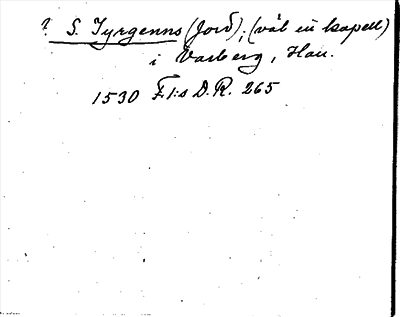 ? S. Jyrgenns (Jord); (väl en kapell)
i Varberg, Hall.
1530 F.I:s D.R. 265